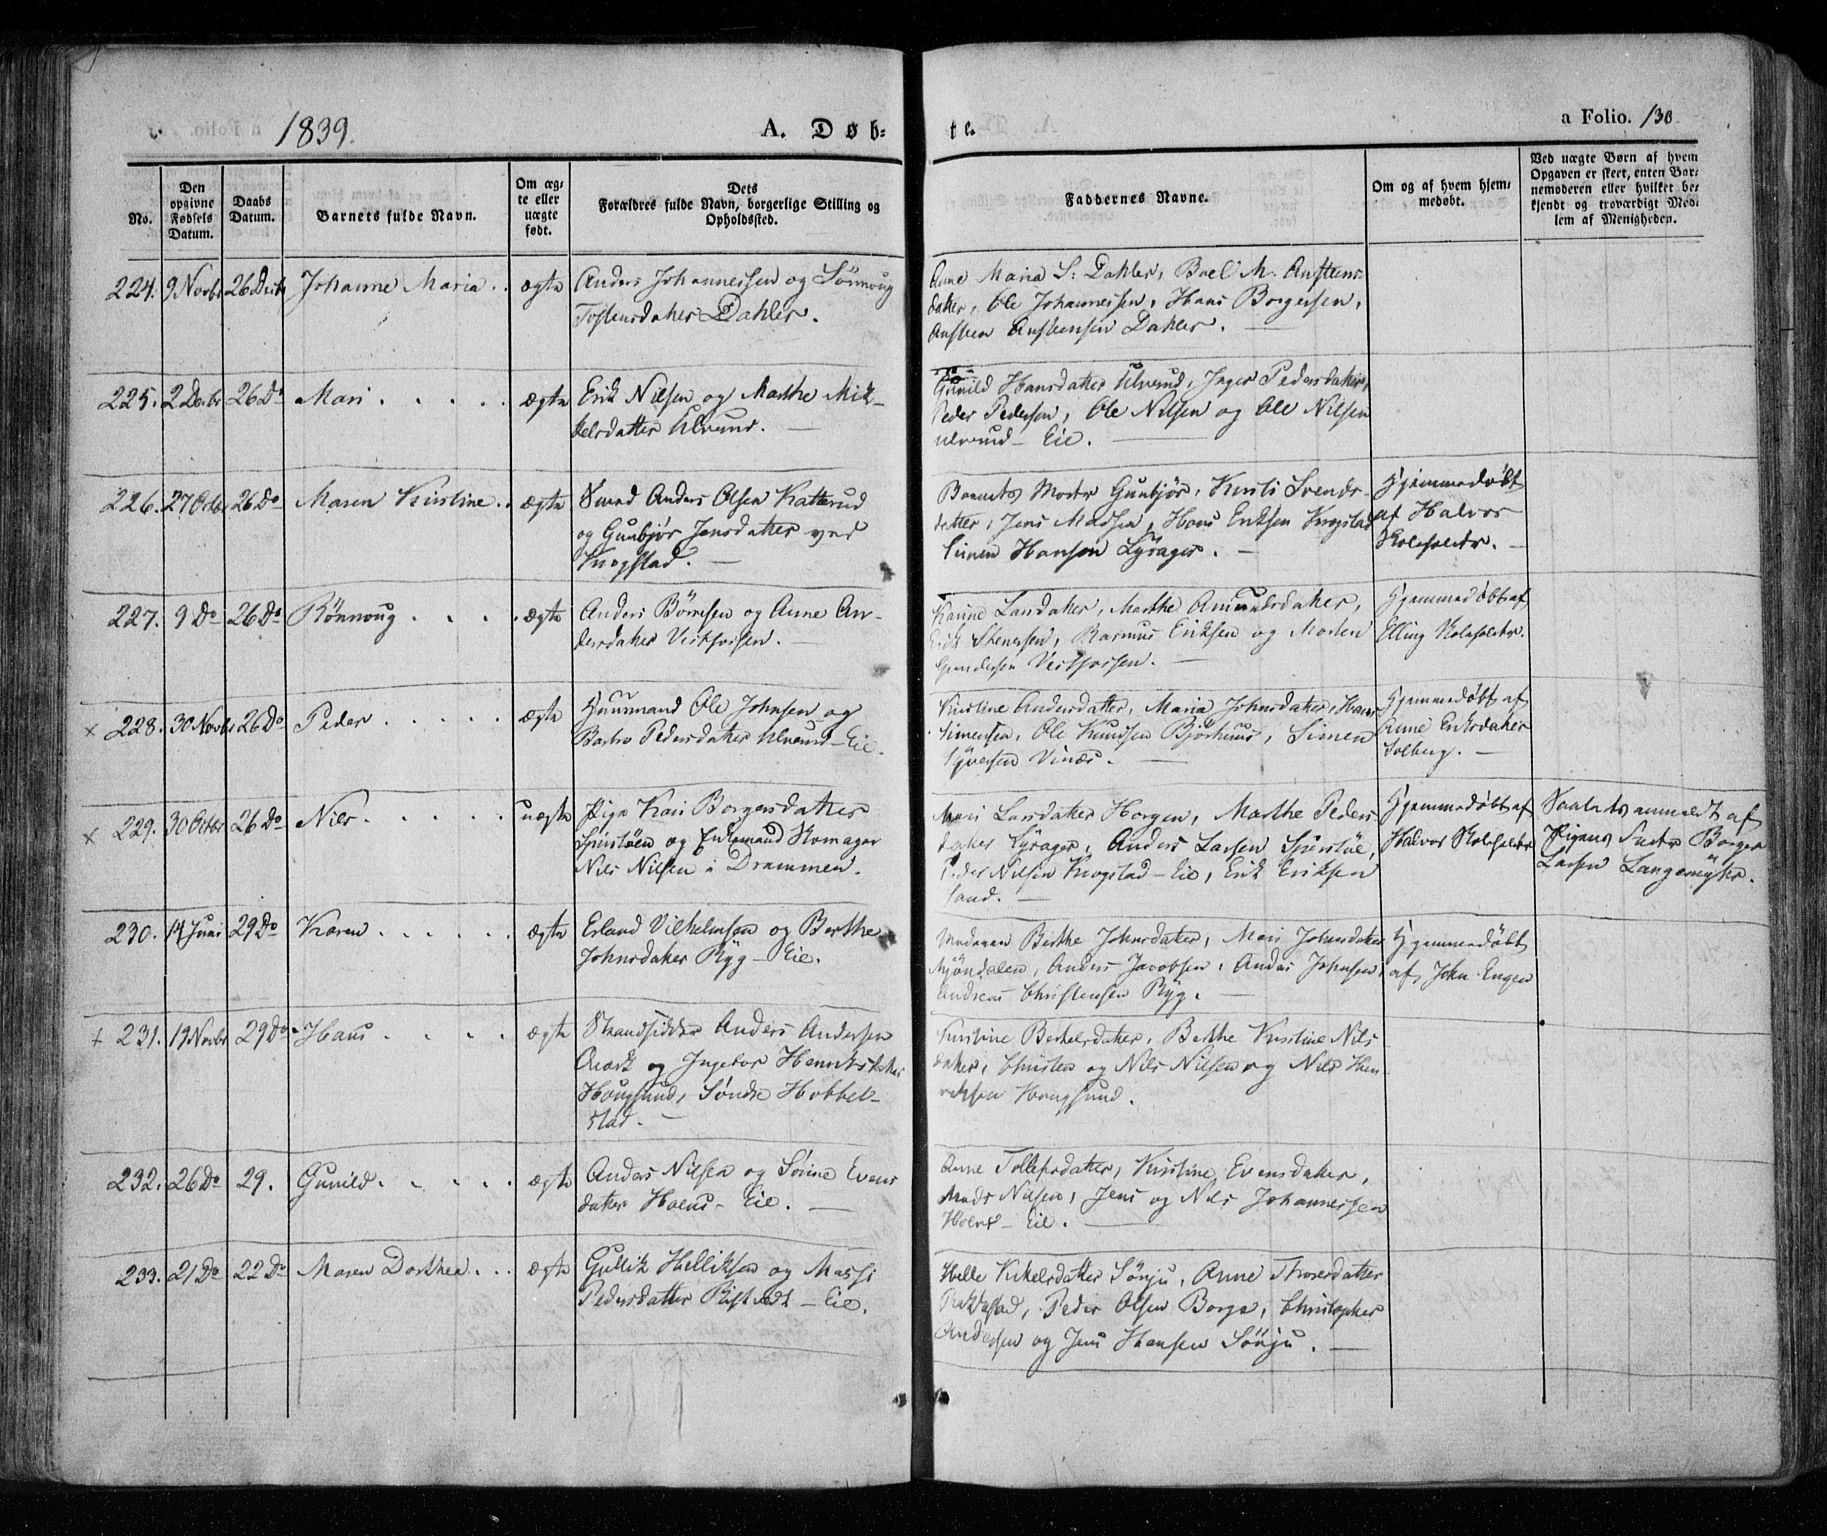 1839.
A. Døb-
te.
a Folio. 130
No.
Den opgivne Fødsels Datum.
Daabs Datum.
Barnets fulde Navn.
Om ægte eller uægte født.
Dets Forældres fulde Navn, borgerlige Stilling og Opholdssted.
Faddernes Navne.
Om og af hvem hjemmedøbt.
Ved uægte Børn af hvem Opgaven er skeet, enten Barnemoderen eller hvilket bekjendt og troværdigt Medlem af Menigheden.
224. 9 Novbr 26 Decbr Johanne Maria. ægte
Anders Johannessen og Sönnoug
Tostensdatter Dahler.
Anne Maria S: Dahler, Boel M. Anstens
datter, Ole Johannessen, Hans Borgersen,
Ansten Anstensen Dahler.
225. 2 Decbr 26 Do Mari ægte
Erik Nilsen og Marthe Mik-
kelsdatter Ulverud.
Gunild Hansdatter Ulverud, Inger Pedersdatter,
Peder Pedersen, Ole Nilsen og Ole Nilsen
Ulverud-Eie.
226. 27 Octbr 26 Do Maren Kirstine ægte
Smed Anders Olsen Katterud
og Gunbjör Jensdatter ved
Krogstad.
Barnets Moder Gunbjör, Kirsti Svends-
datter, Jens Madsen, Hans Eriksen Krogstad
Simen Hansen Lyrager.
Hjemmedøbt
af Halvor
Skoleholder.
227. 9 Do 26 Do Rönnoug ægte
Anders Börresen og Anne An-
dersdatter Vestfossen.
Karine Larsdatter, Marthe Amundsdatter,
Erik Stenersen, Rasmus Eriksen og Morten
Gundersen Vestfossen.
Hjemmedøbt af
Elling Skoleholder.
× 228. 30 Novbr 26 Do Peder ægte
Huusmand Ole Johnsen og
Berthe Pedersdatter Ulverud-Eie.
Kirstine Andersdatter, Maria Johnsdatter, Hans
Simensen, Ole Knudsen Björkhuus, Simen
Syversen Vinæs.
Hjemmedøbt af
Anne Eriksdatter
Solberg.
× 229. 30 Octbr 26 Do Nils uægte
Pige Kari Borgersdatter
og Enkemand Skomager
Nils Nilsen i Drammen.
Mari Larsdatter Horgen, Marthe Peders
datter Lyrager, Anders Larsen
Peder Nilsen Krogstad-Eie, Erik Eriksen
Hjemmedøbt af
Halvor Skoleholder
Daabets anmeldt af
Pigens Fader Borger
Larsen Langemyhr.
230. 14 Juni 29 Do Karen ægte
Erland Vilhelmsen og Berthe
Johnsdatter Ryg-Eie.
Madamen Berthe Johnsdatter, Mari Johnsdatter
Mjöndalen, Anders Jacobsen, Anders Johnsen,
Andreas Christensen Ryg.
Hjemmedøbt
af John Engen
+ 231. 19 Novbr 29 Do Hans ægte
Strandsidder Anders Andersen
Qværk og Ingebor Henriksdatter
Hougsund, Söndre Hobbel-
stad.
Kirstine Berthelsdatter, Berthe Kirstine Nils
datter, Christen og Nils Nilsen og Nils Hen
riksen Hougsund.
232. 26 Do 29. Gunild ægte
Anders Nilsen og Sönne Evens
datter Hoens-Eie.
Anne Tollefsdatter, Kirstine Evensdatter,
Mads Nilsen, Jens og Nils Johannessen
Hoens-Eie.
233. 21 Do 22 Do Maren Dorthea ægte
Gullik Helliksen og Massi
Pedersdatter -Eie.
Helle Kittelsdatter Sönju, Anne Thorsdatter
Peder Olsen Borge, Christopher
Andersen og Jens Hansen Sönju.